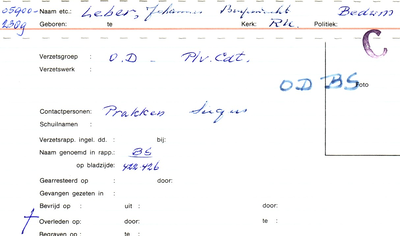 05900- Naam etc.: Leber, Johannes Bedum
230g Geboren: te Kerk: R.K. Politiek:
C
Verzetsgroep : O.D - Plv. Cdt.
Verzetswerk :
OD BS
Foto
Contactpersonen: Prakken
Schuilnamen :
Verzetsrapp. ingel. dd. : bij:
Naam genoemd in rapp.: BS
op bladzijde: 422-426
Gearresteerd op : door:
Gevangen gezeten in :
Bevrijd op : uit : door:
Overleden op: door: te :
Begraven op : te :